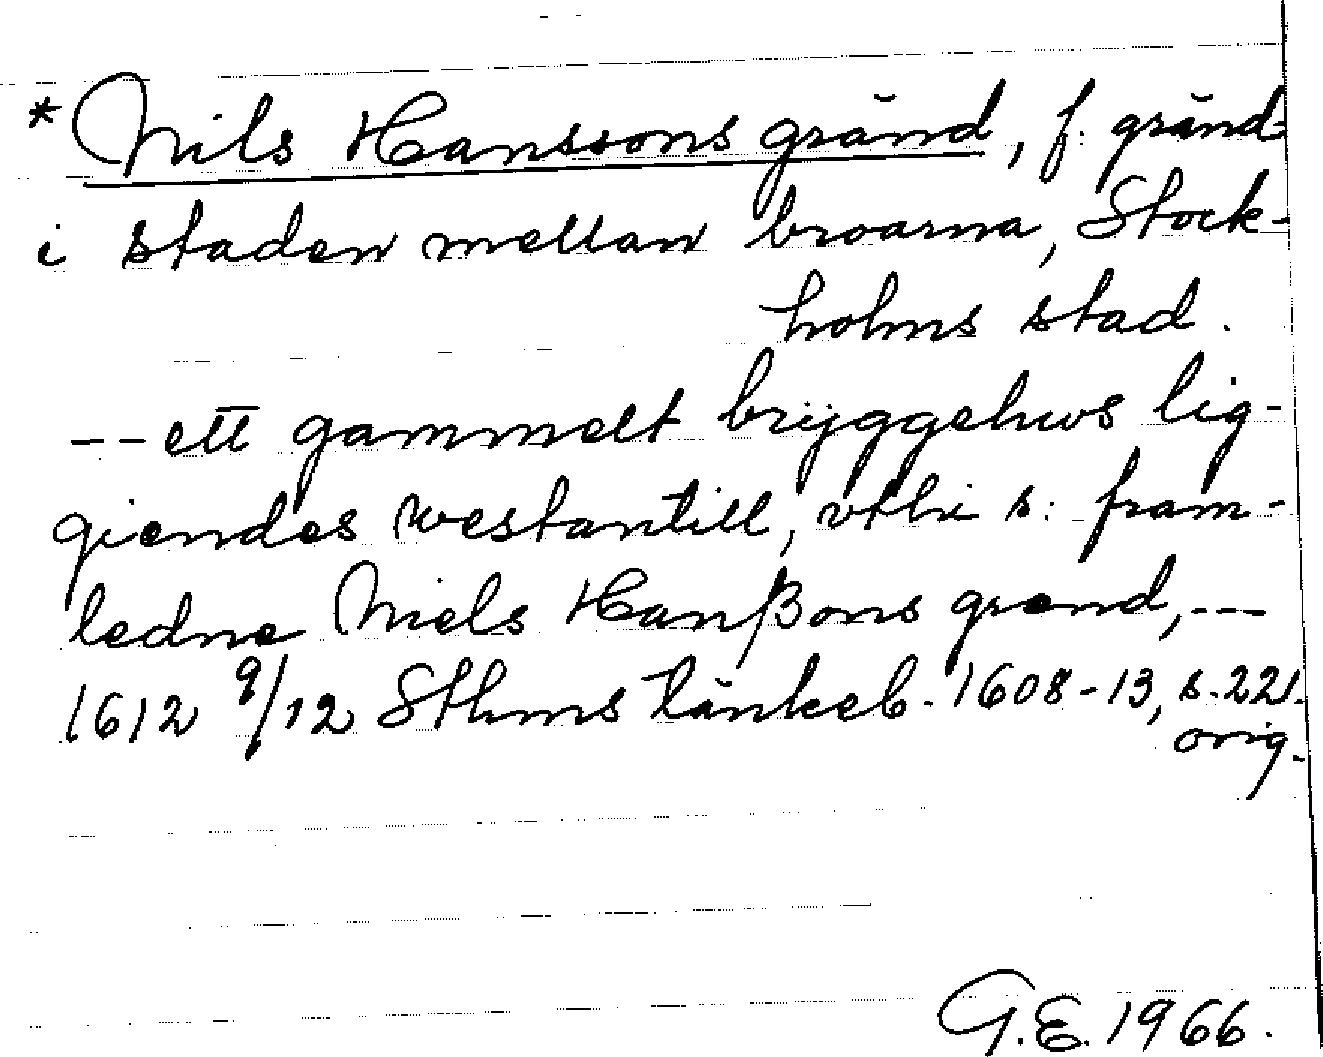 * Nils Hanssons gränd, f. gränd
i staden mellan broarna, Stock-
holms stad.
-- ett gammelt bryggehws lig-
giendes westantill, vthi s: fram-
ledne Niels Hanßons grend, ---
1612 9/12 Sthms tänkeb. 1608-13, s. 221.
orig.
G.E. 1966.